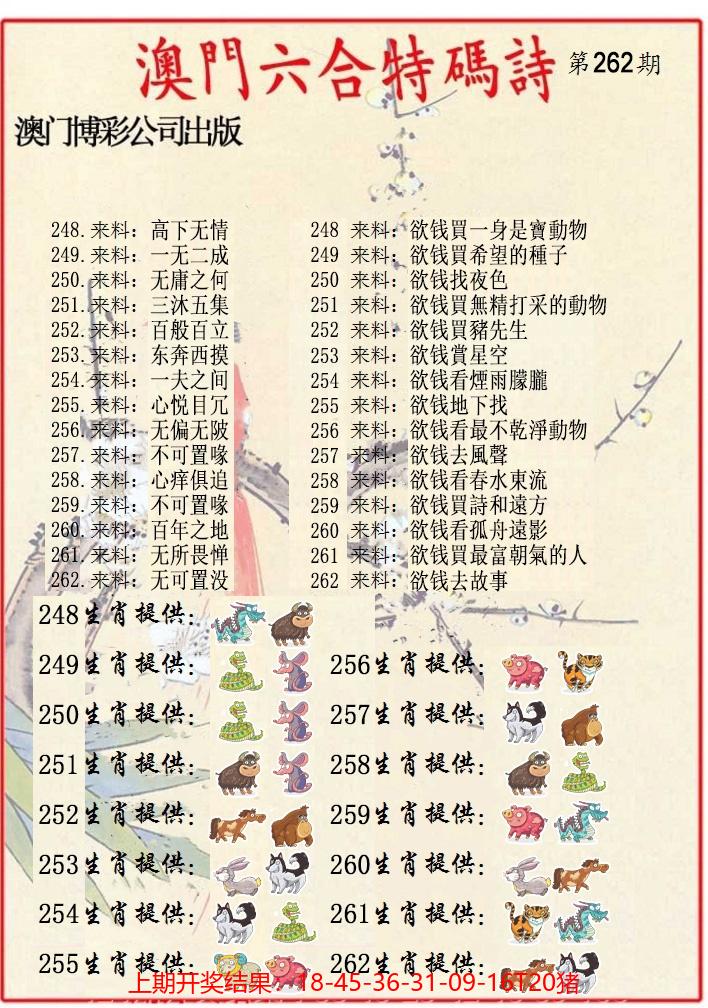 澳門六合特碼詩 第262期
澳门博彩公司出版
248.来料：高下无情
249.来料：一无二成
250.来料：无庸之何
251.来料：三沐五集
252.来料：百般百立
253.来料：东奔西摸
254.来料：一夫之间
255.来料：心悦目冗
256.来料：无偏无陂
257.来料：不可置喙
258.来料：心痒俱追
259.来料：不可置喙
260.来料：百年之地
261.来料：无所畏惮
262.来料：无可置没
248 来料：欲钱買一身是寶動物
249 来料：欲钱買希望的種子
250 来料：欲钱找夜色
251 来料：欲钱買無精打采的動物
252 来料：欲钱買豬先生
253 来料：欲钱賞星空
254 来料：欲钱看煙雨朦朧
255 来料：欲钱地下找
256 来料：欲钱看最不乾淨動物
257 来料：欲钱去風聲
258 来料：欲钱看春水東流
259 来料：欲钱買詩和遠方
260 来料：欲钱看孤舟遠影
261 来料：欲钱買最富朝氣的人
262 来料：欲钱去故事
248生肖提供：
249生肖提供：
250生肖提供：
251生肖提供：
252生肖提供：
253生肖提供：
254生肖提供：
255生肖提供：
256生肖提供：
257生肖提供：
258生肖提供：
259生肖提供：
260生肖提供：
261生肖提供：
262生肖提供：
上期开奖结果：18-45-36-31-09-15T20猪